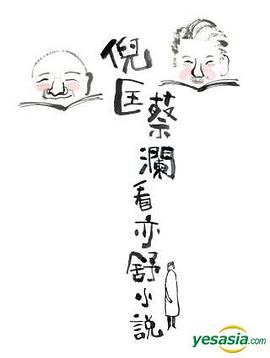 倪匡
蔡瀾
看亦舒小說
yesasia.com